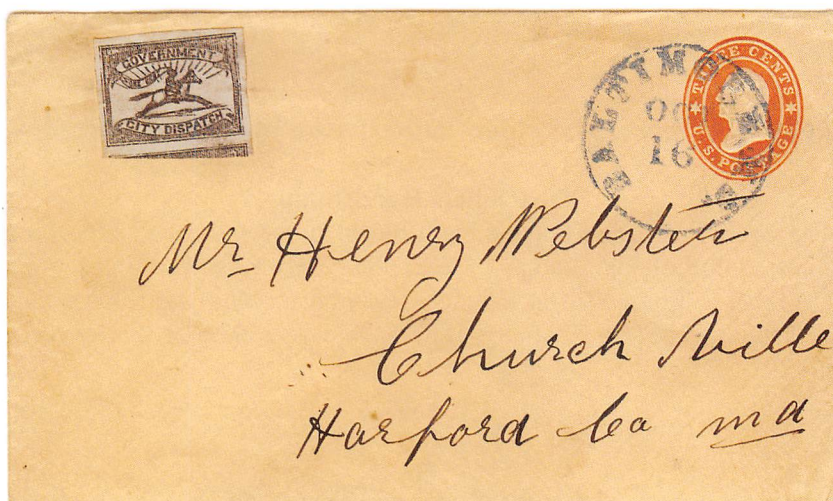 GOVERNMENT
CITY DISPATCH
BALTIMORE
OCT
16
THREE CENTS
U.S. POSTAGE
Mr Henry Webster
Church Ville
Harford Co Md